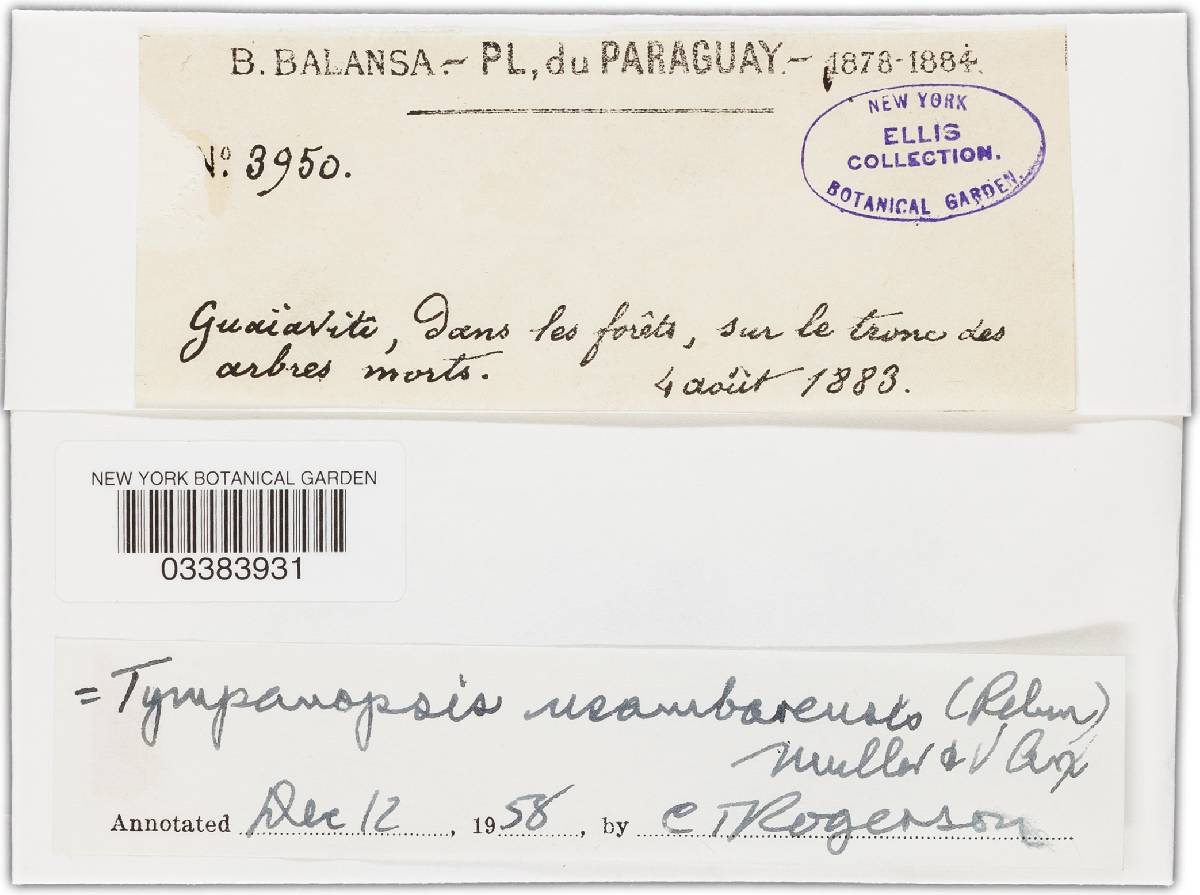 B. BALANSA.– PL, du PARAGUAY.– 1878-1884.
NEW YORK
ELLIS
COLLECTION.
BOTANICAL GARDEN.
Nº. 3950.
Guaiaviti, Dans les forêts, sur le tronc des
arbres morts. 4 août 1883.
NEW YORK BOTANICAL GARDEN
03383931
= Tympanopsis usambarensis (Rehm)
Muller & V Arx
Annotated Dec 12, 1958, by C T Rogerson